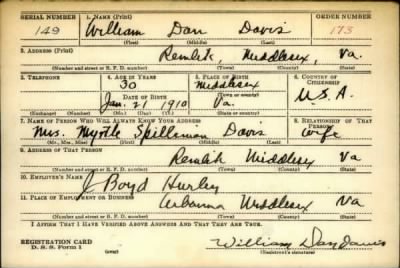 SERIAL NUMBER 1. NAME (Print) ORDER NUMBER
149 William Dan Davis 173
(First) (Middle) (Last)
2. ADDRESS (Print)
Remlik, Middlesex, Va.
(Number and street or R. F. D. number) (Town) (County) (State)
3. TELEPHONE 4. AGE IN YEARS 5. PLACE OF BIRTH 6. COUNTRY OF CITIZENSHIP
30 Middlesex
DATE OF BIRTH (Town or county)
Jan. 21 1910 Va. U.S.A.
(Exchange) (Number) (Mo.) (Day) (Yr.) (State or country)
7. NAME OF PERSON WHO WILL ALWAYS KNOW YOUR ADDRESS 8. RELATIONSHIP OF THAT PERSON
Mrs. Myrtle Spillman Davis wife
(Mr., Mrs., Miss) (First) (Middle) (Last)
9. ADDRESS OF THAT PERSON
Remlik Middlesex Va
(Number and street or R. F. D. number) (Town) (County) (State)
10. EMPLOYER'S NAME
J Boyd Hurley
11. PLACE OF EMPLOYMENT OR BUSINESS
Urbanna Middlesex Va
(Number and street or R. F. D. number) (Town) (County) (State)
I AFFIRM THAT I HAVE VERIFIED ABOVE ANSWERS AND THAT THEY ARE TRUE.
REGISTRATION CARD
D. S. S. Form 1 William Dan Davis
(Registrant's signature)